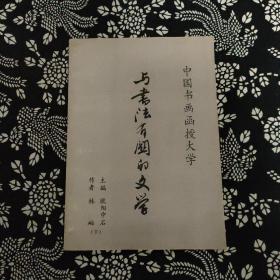 中国书画函授大学
与書法有関的文学
主编 欧阳中石
作者 林岫